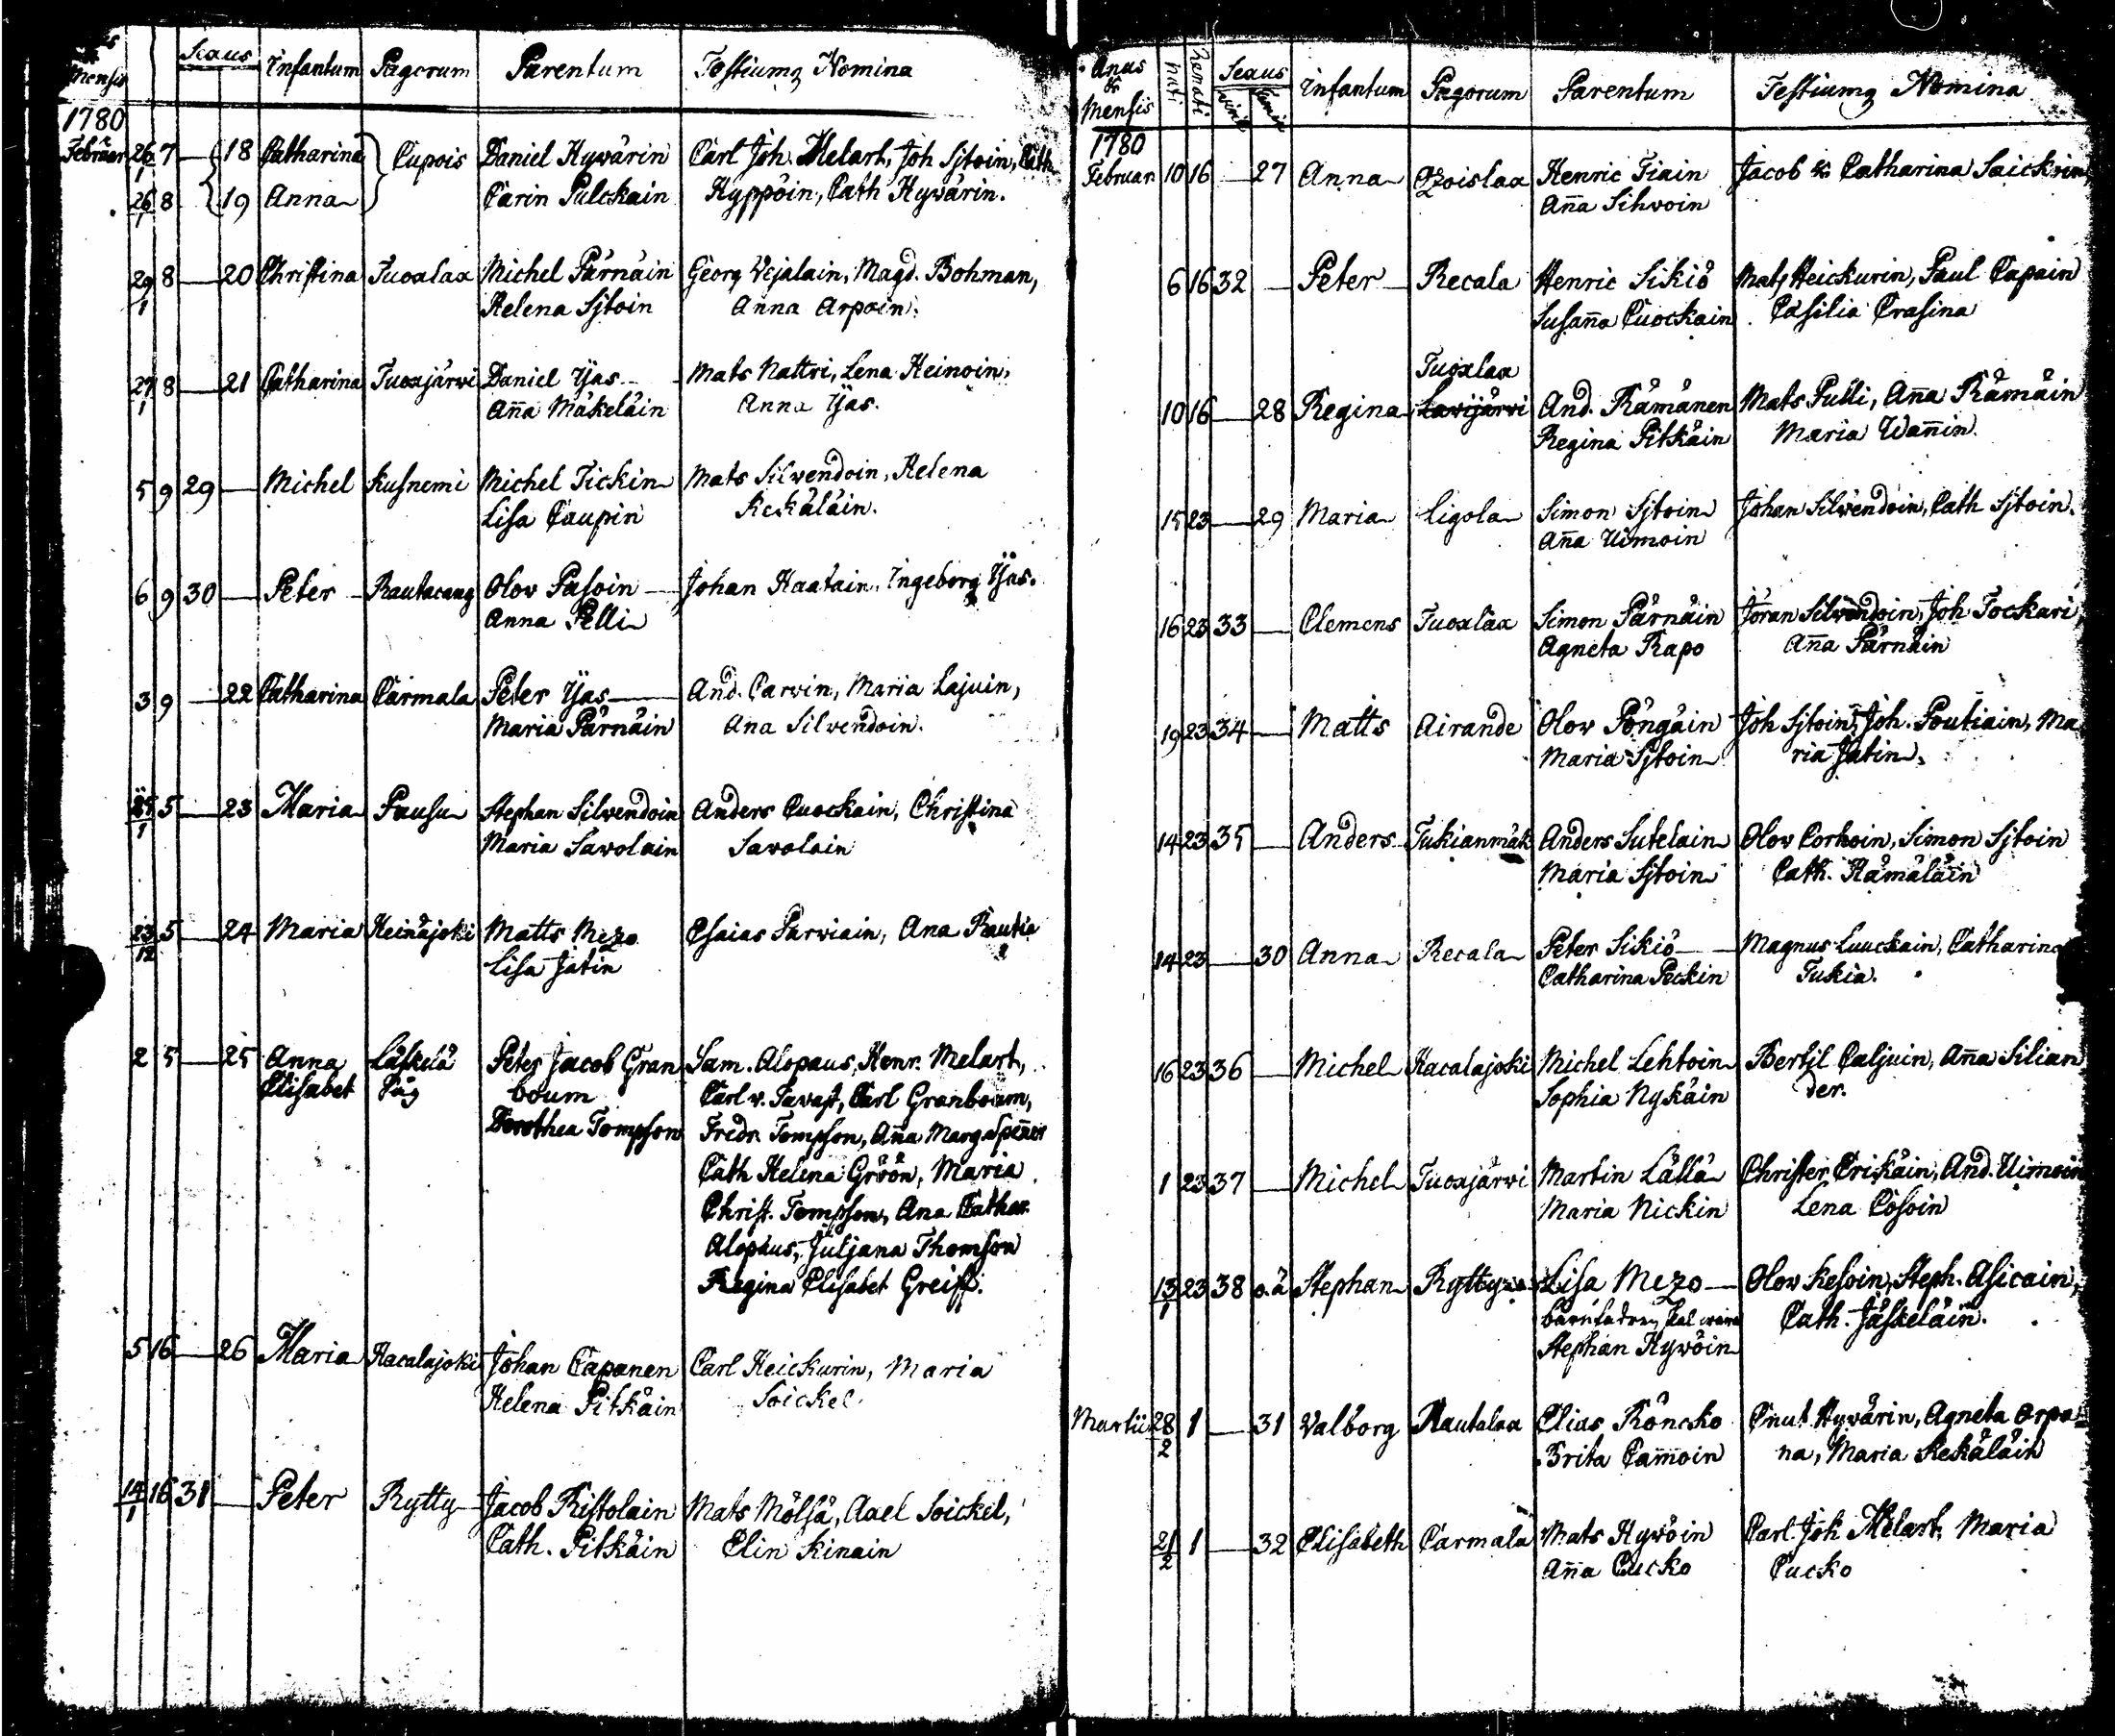 Mensis Sexus Infantum Pagorum Parentum Testiumq Nomina
1780
Februar 26/1 7 — 18 Catharina Cupois Daniel Hyvärin Carl Joh. Melart, Joh Sjtoin, Cath
26/1 8 19 Anna Carin Pulckain Hyppöin, Cath Hyvärin.
29/1 8 — 20 Christina Tuoxlax Michel Pärnäin Georg Vejalain, Magd. Bohman,
Helena Sjtoin Anna Arpoin.
27/1 8 — 21 Catharina Tuoxjärwi Daniel Yjas Mats Nattri, Lena Heinoin,
Aña Mäkeläin Anna Yjas.
5 9 29 — Michel Kusnemi Michel Tickin Mats Silvendoin, Helena
Lisa Caupin Kekäläin.
6 9 30 — Peter Rautacang Olov Pasoin Johan Haatain, Ingeborg Yjas.
Anna Pelli
3 9 — 22 Catharina Carmala Peter Yjas And. Carvin, Maria Lajuin,
Maria Pärnäin Ana Silvendoin.
25/1 5 — 23 Maria Pausu Stephan Silvendoin Anders Cuockain, Christina
Maria Savolain Savolain
23/12 5 — 24 Maria Heinäjoki Matts Mezo Esaias Parviain, Ana Rautia
Lisa Jatin
2 5 — 25 Anna Läskelä Peter Jacob Gran Sam. Alopæus, Henr. Melart,
Elisabet Såg boum Carl v. Tavast, Carl Granboum,
Dorothea Tompson Fredr. Tompson, Aña Marg Speñer
Cath Helena Gröön, Maria
Christ. Tompson, Ana Cathar.
Alopæus, Juljana Thomson
Regina Elisabet Greiff.
5 16 — 26 Maria Hacalajoki Johan Capanen Carl Heickurin, Maria
Helena Pitkäin Soickel.
14/1 16 31 — Peter Rytty Jacob Ristolain Mats Mölsä, Axel Soickel,
Cath. Pitkäin Elin Kinain
Anus & Mensis Nati Renati Sexus Infantum Pagorum Parentum Testiumq Nomina
1780
Februar 10 16 — 27 Anna Ozoislax Henric Tiain Jacob & Catharina Saickoin
Aña Sihvoin
6 16 32 — Peter Recala Henric Sikiö Mats Heickurin, Paul Capain
Susaña Cuockain Casilia Crasina
Tuoxlax
10 16 — 28 Regina Lavijärvi And. Rämänen Mats Pulli, Aña Rämäin
Regina Pitkäin Maria Wañin.
15 23 — 29 Maria Ligola Simon Sjtoin Johan Silvendoin, Cath Sjtoin.
Aña Uimoin
16 23 33 — Clemens Tuoxlax Simon Pärnäin Jöran Silvendoin, Joh Tockari
Agneta Rapo Aña Pärnäin
19 23 34 — Matts Airande Olov Pöngäin Joh Sjtoin, Joh. Poutiain, Ma
Maria Sjtoin ria Jatin.
14 23 35 — Anders Tukianmäk Anders Sutelain Olov Corhoin, Simon Sjtoin
Maria Sjtoin Cath. Hämäläin
14 23 — 30 Anna Recala Peter Sikiö Magnus Luuckain, Catharina
Catharina Peckin Tukia.
16 23 36 — Michel Hacalajoki Michel Lehtoin Bertil Caljuin, Aña Silian
Sophia Nykäin der.
1 23 37 — Michel Tuoxjärvi Martin Lällä Christer Erikäin, And. Uimoin
Maria Nickin Lena Cosoin
13/1 23 38 o.ä Stephan Rytty Lisa Mezo Olov Kesoin, Steph. Asicain,
barnfadren skal wara Cath. Jäskeläin.
Stephan Hyvöin
Martii 28/2 1 — 31 Valborg Rautalax Elias Röncko Cnut Hyvärin, Agneta Orpa=
Brita Cam̃oin na, Maria Kekäläin
21/2 1 — 32 Elisabeth Carmala Mats Hyvöin Carl Joh Melart, Maria
Aña Cucko Cucko